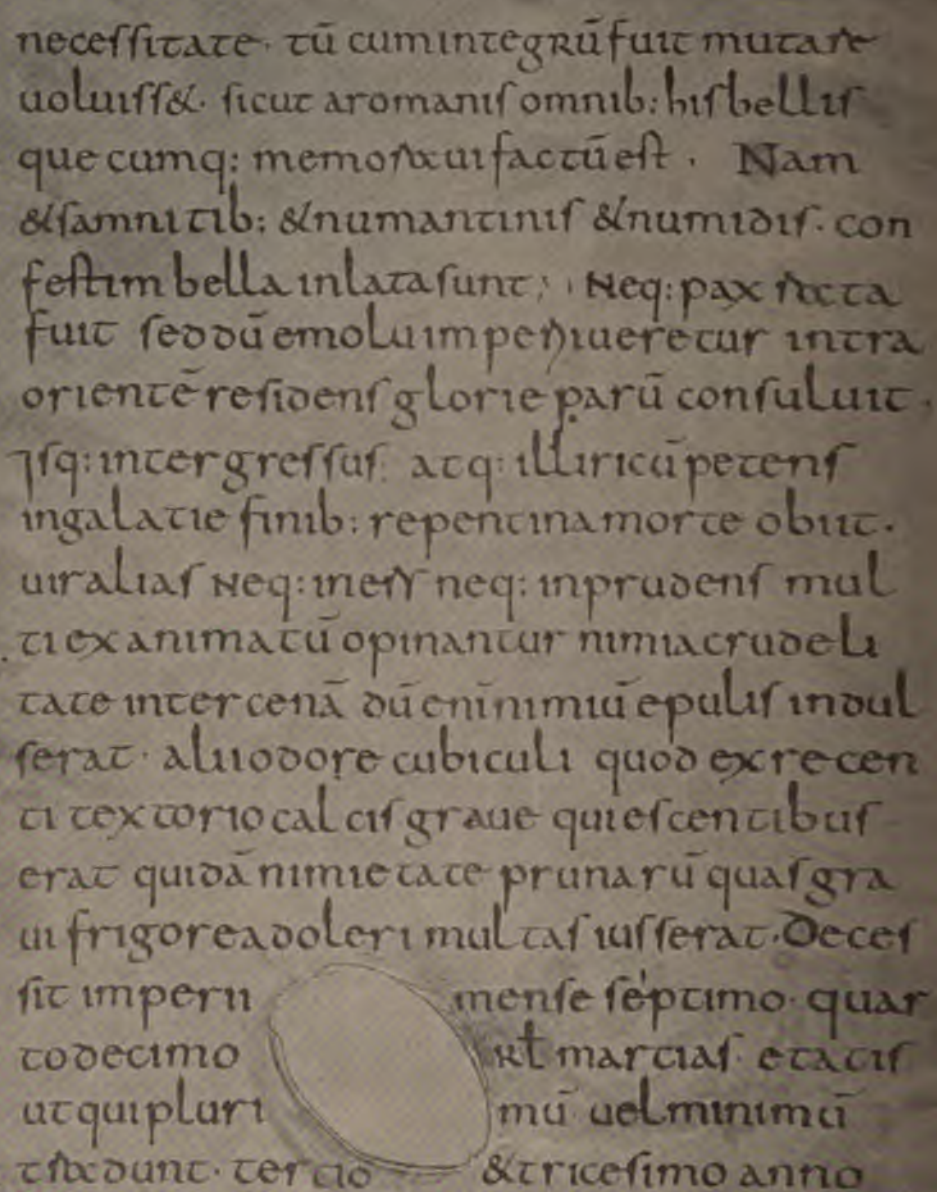 necessitate · tū cum integrū fuit mutare
uoluiss& · sicut aromanis omnib: his bellis
que cumq: memoratui factū est . Nam
&samnitib: &numantinis &numidis · con
festim bella inlata sunt; Neq: pax rata
fuit sed dū emolui imperii ueretur intra
orientē residens glorie parū consuluit .
Isq: inter gressus atq: illiricū petens
ingalatie finib: repentina morte obiit ·
uir alias Neq: iners neq: inprudens mul
ti exanimatū opinantur nimia crudeli
tate inter cenā dū enī nimiū epulis indul
serat · alii odore cubiculi quod ex recen
ti textorio calcis graue quiescentibus
erat quidā nimietate prunarū quas gra
ui frigore adoleri multas iusserat · Deces
sit imperii mense septimo · quar
to decimo kł martias · etatis
ut qui pluri mū uel minimū
tradunt · tercio &tricesimo anno